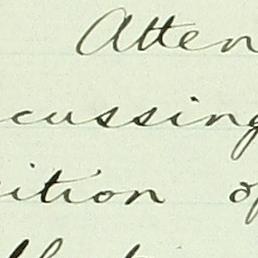 Atten
cussing
ition of